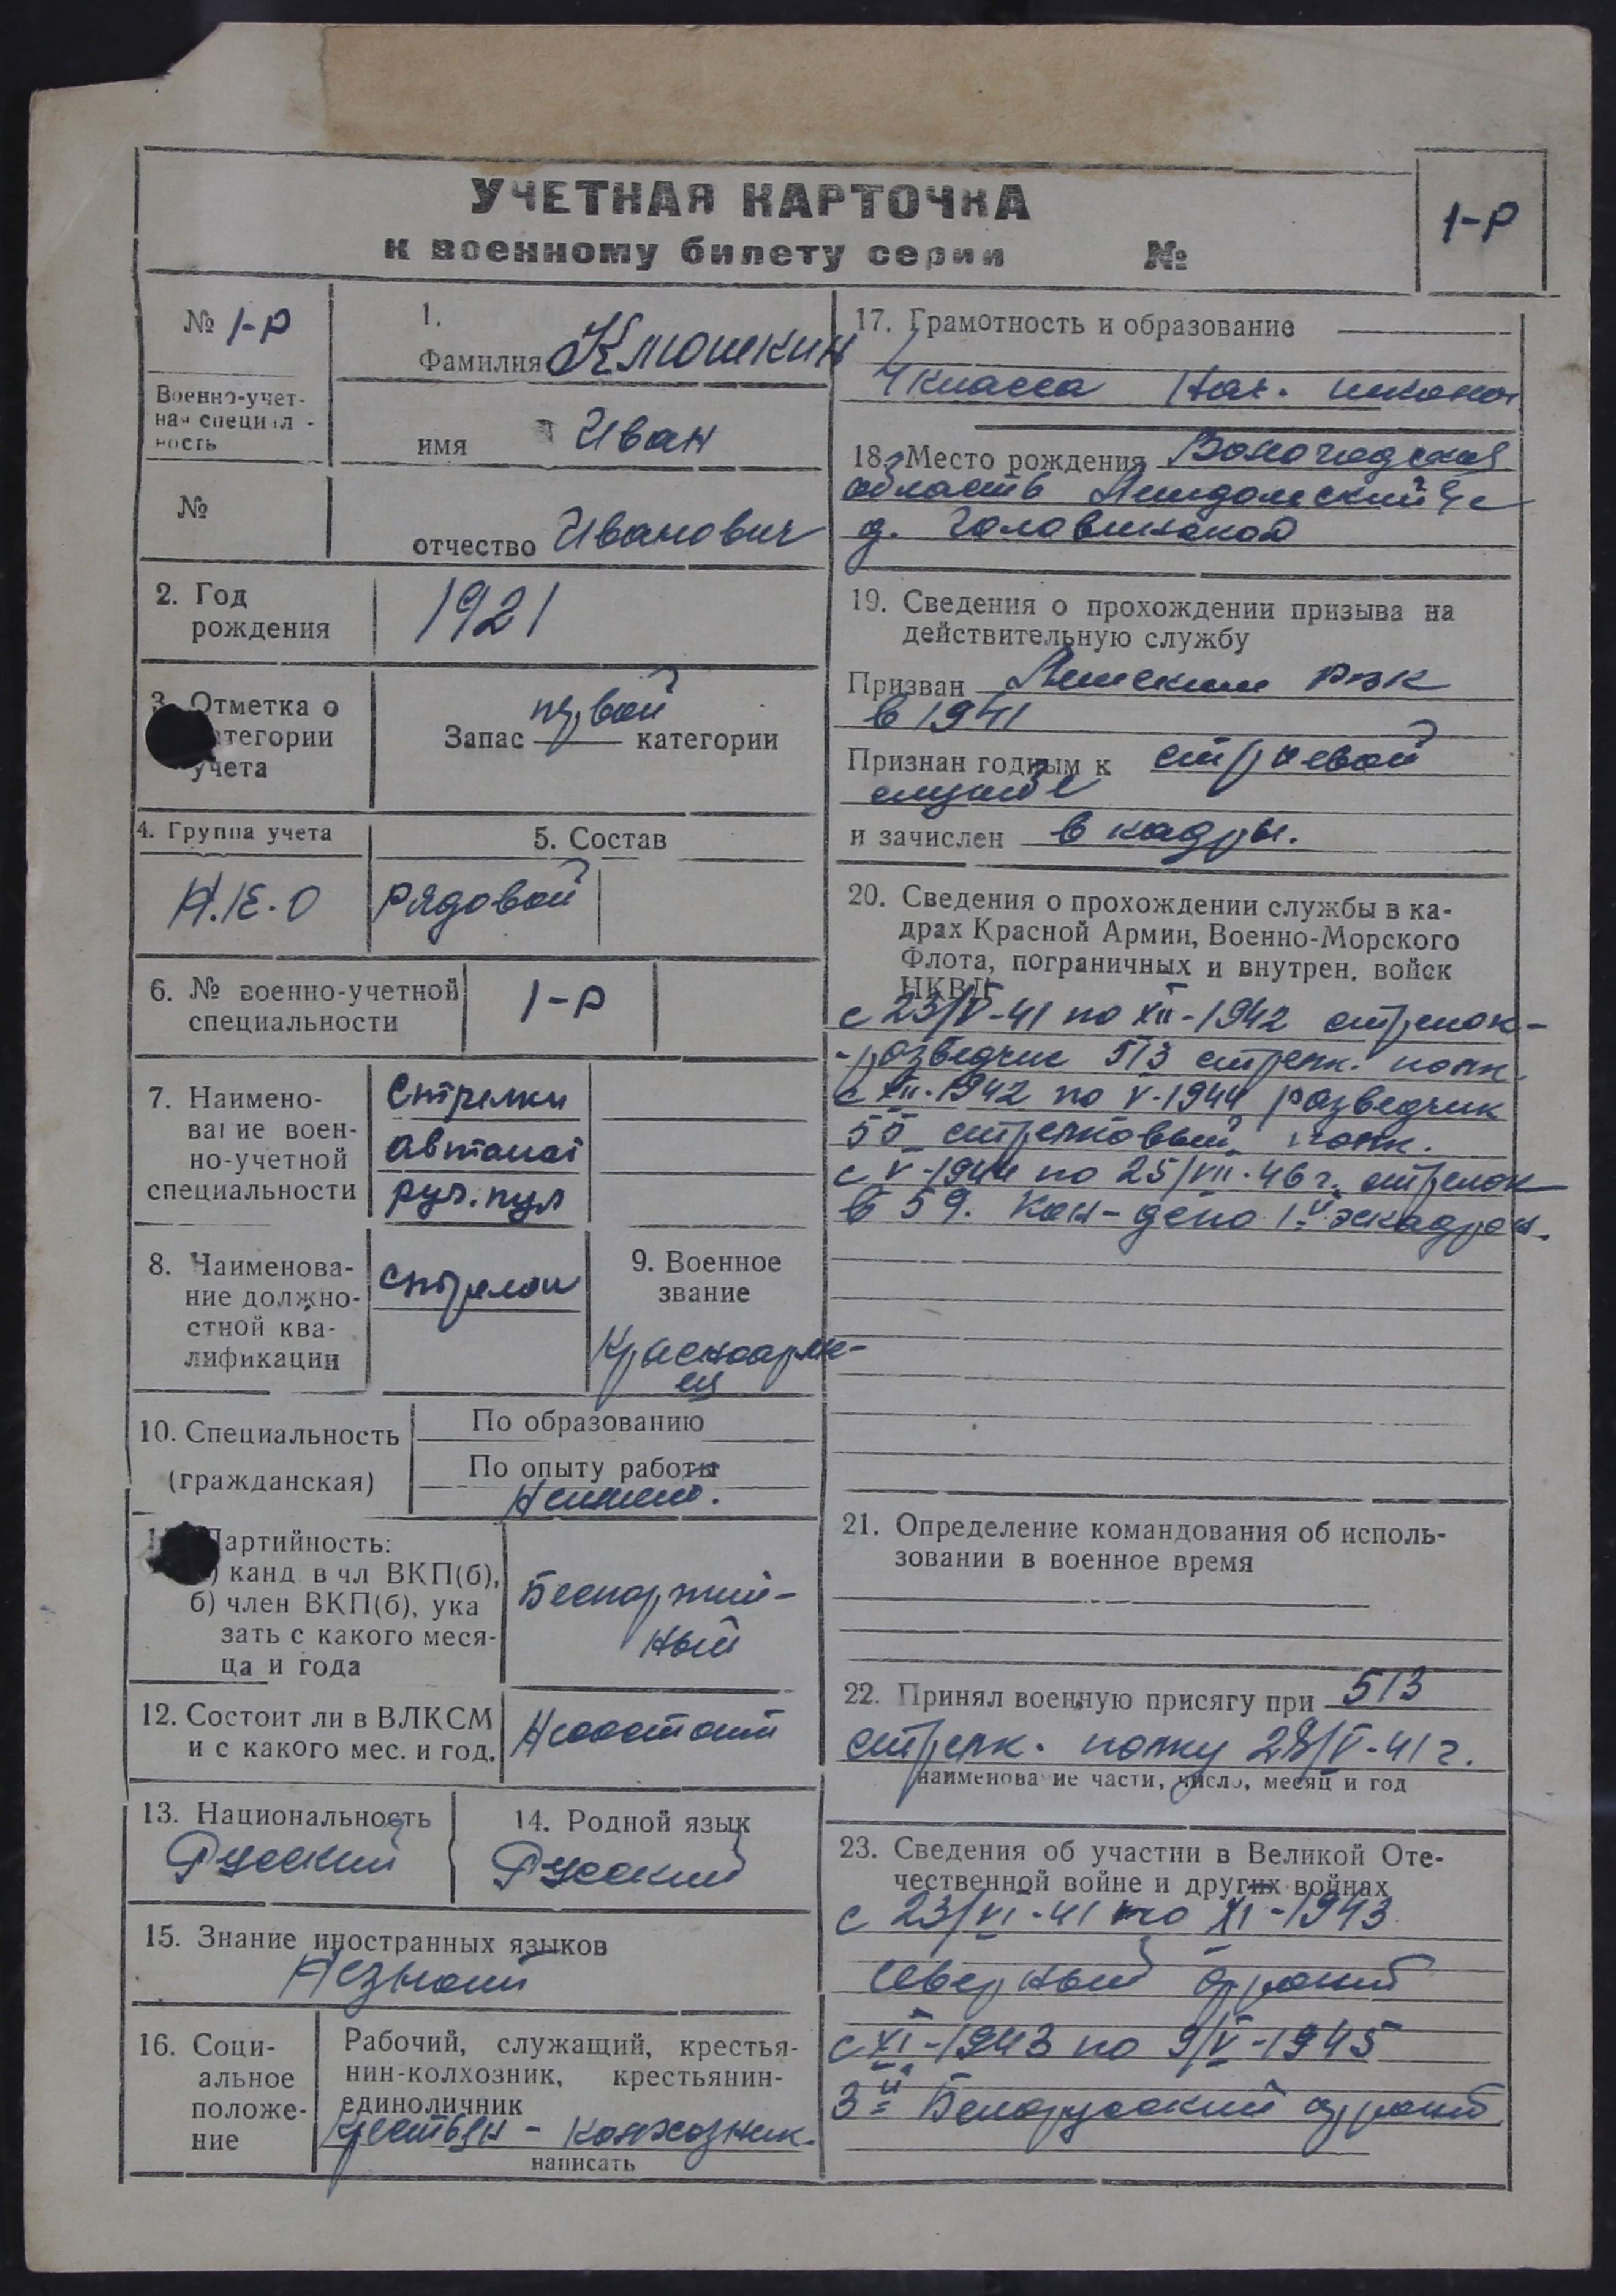 УЧЕТНАЯ КАРТОЧКА
к военному билету серии №
1-Р
№ 1-Р
Военно-учет-
ная специал-
ность
№
1.
Фамилия Клюшкин
имя Иван
отчество Иванович
2. Год
рождения
1921
3. Отметка о
категории
учета
Запас первой категории
4. Группа учета
5. Состав
рядовой
6. № военно-учетной
специальности
1-Р
7. Наимено-
вание воен-
но-учетной
специальности
Стрелки
автомат
руч. пул
8. Наименова-
ние должно-
стной ква-
лификации
стрелок
9. Военное
звание
Красноарме-
ец
10. Специальность
(гражданская)
По образованию
По опыту работы
Партийность:
канд в чл ВКП(б),
б) член ВКП(б), ука
зать с какого меся-
ца и года
Беспартий-
ный
12. Состоит ли в ВЛКСМ
и с какого мес. и год.
Несостоит
13. Национальность
Русский
14. Родной язык
Русский
15. Знание иностранных языков
Незнает
16. Соци-
альное
положе-
ние
Рабочий, служащий, крестья-
нин-колхозник, крестьянин-
единоличник
Крестьян-колхозник.
написать
17. Грамотность и образование
4 класса нач. школы
18. Место рождения Вологодская
область
д.
19. Сведения о прохождении призыва на
действительную службу
Призван РВК
в 1941
Признан годным к строевой
службе
и зачислен в кадры.
20. Сведения о прохождении службы в ка-
драх Красной Армии, Военно-Морского
Флота, пограничных и внутрен. войск
НКВД
с 23/V-41 по XII-1942 стрелок-
-разведчик 513 стрелк. полк.
с XII-1942 по V-1944 разведчик
55 стрелковый полк.
с V-1944 по 25/VII-46 г. стрелок
в 59. Кон-депо 1й эскадрон.
21. Определение командования об исполь-
зовании в военное время
22. Принял военную присягу при 513
стрелк. полку 28/V-41 г.
наименование части, число, месяц и год
23. Сведения об участии в Великой Оте-
чественной войне и других войнах
с 23/VI-41 по XI-1943
Северный фронт
с XI-1943 по 9/V-1945
3й Белорусский фронт